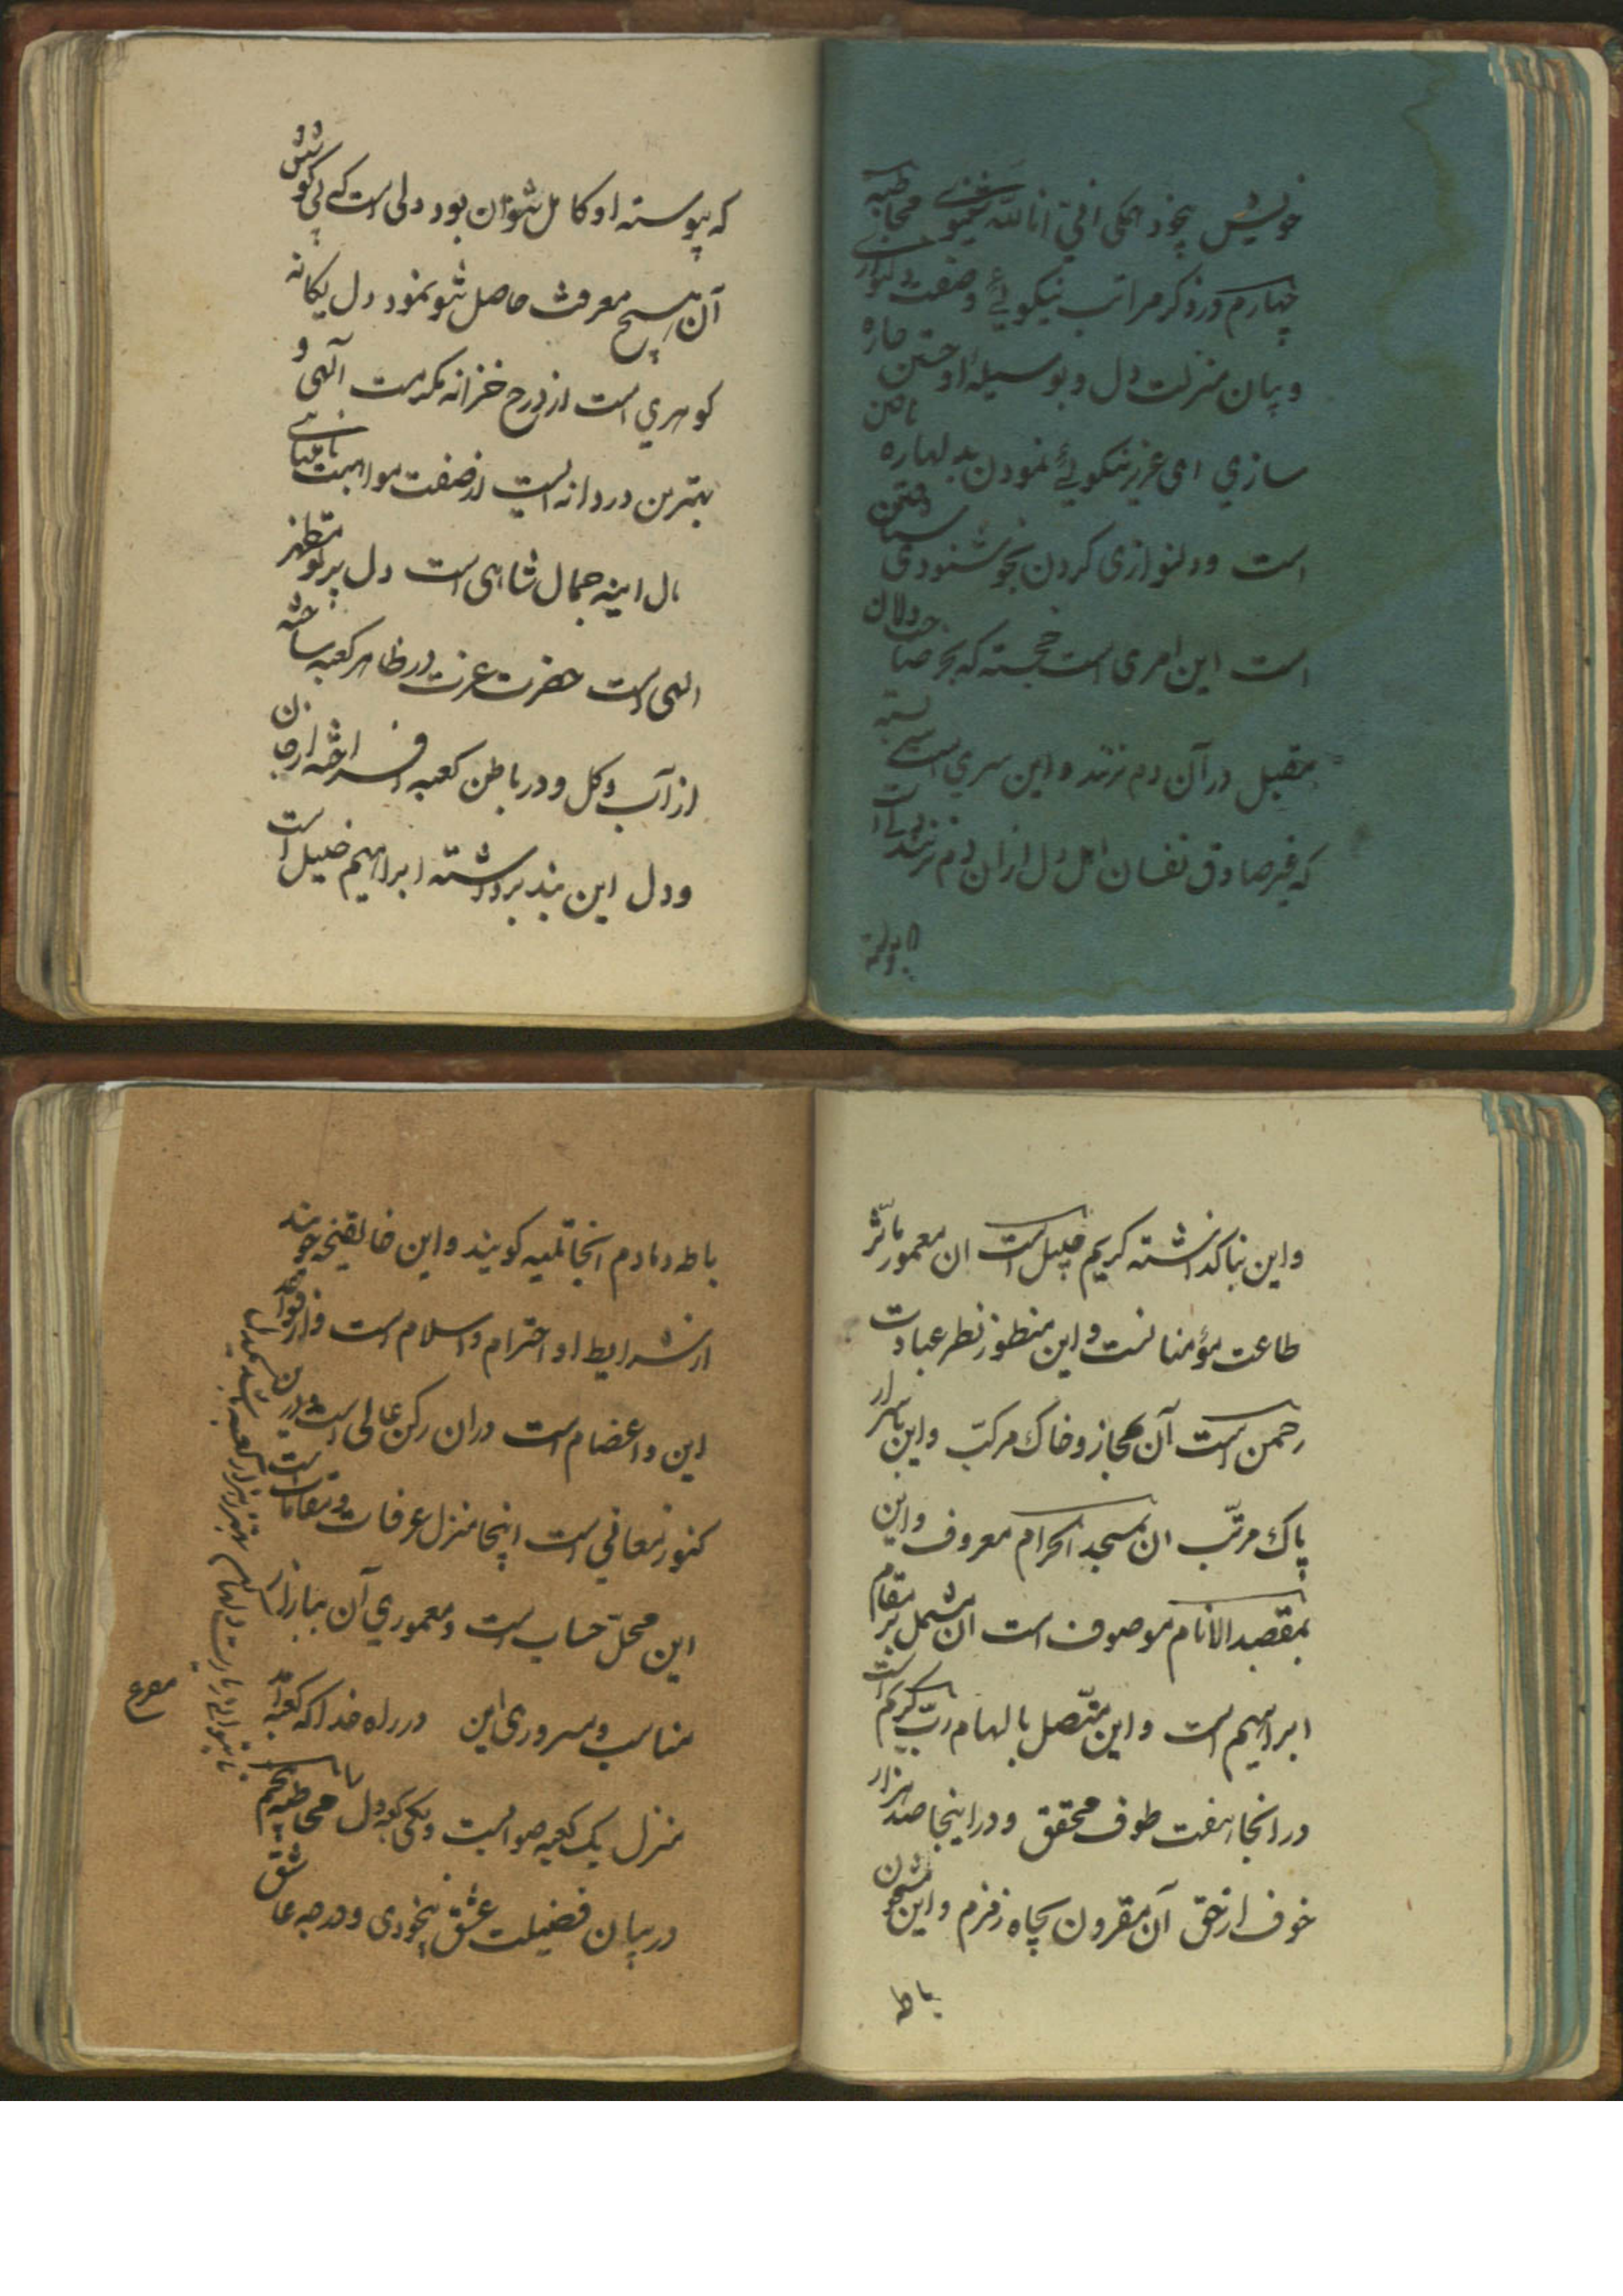 خویش بیخود انکی انی انا الله شیوه‌ مخاطبه
چهارم در ذکر مراتب نیکویی وصفت دلنوازی
و بیان منزلت دل و بوسیله او جستن چاره
سازي ای عزیز نیکویی نمودن به
است ودلنوازی کردن بخوشنودی
است این امری است خجسته که بجز صاحبدلان
مقبل در آن دم نزنند واین سري است
که غیر صادق نفسان اهل دل ازان دم نزنند
که پیوسته او کامل شوان بود دلی است که بی کوشش
آن هیچ معرفت حاصل شو نمود دل یکانه
کوهري است از درج خزانه مکرمت آلهی و
بهترین دردانه ایست از صفت مواهبت
دل اینه جمال شاهی است دل پرتو
الهی است حضرت عزت در ظاهر کعبه ساخته
از آب وکل و در باطن کعبه افراخته از جان
ودل این بند برداشته ابراهیم خلیل است
واین بنا کذاشته کریم جلیل است ان معمور بآثر
طاعت مؤمنانست واین منظور نظر عبادت
رحمن است آن مجاز وخاك مرکّب واین باسرار
پاك مرتّب ان بمسجد الحرام معروف واین
بمقصد الانام موصوف است ان مشتمل بر مقام
ابراهیم است واین متّصل بالهام ربّ کریم است
در انجا هفت طوف محقق و در اینجا صد هزار
خوف از حق آن مقرون بچاه زمزم واین مشحون
باط
باط دمادم آنجا تلبیه کویند واین جا جویند
از شرایط او احترام واسلام است واز فواید
این واعضام است دران رکن عالی است ودرین
کنوز معانی است اینجا منزل عرفات ومقامات است
این محلّ حساب است ومعموري آن ببازار
مناسب وسروری این در راه خدا که کعبه آمد
منزل یک کعبه صورایست ویکی کعبه دل مخاطبه پنجم
در بیان فضیلت عشق بیخودی ودرجه عاشق
مصرع
تا بتوانی زیارت دلها کن بهتر ز هزار کعبه باشد یکدل